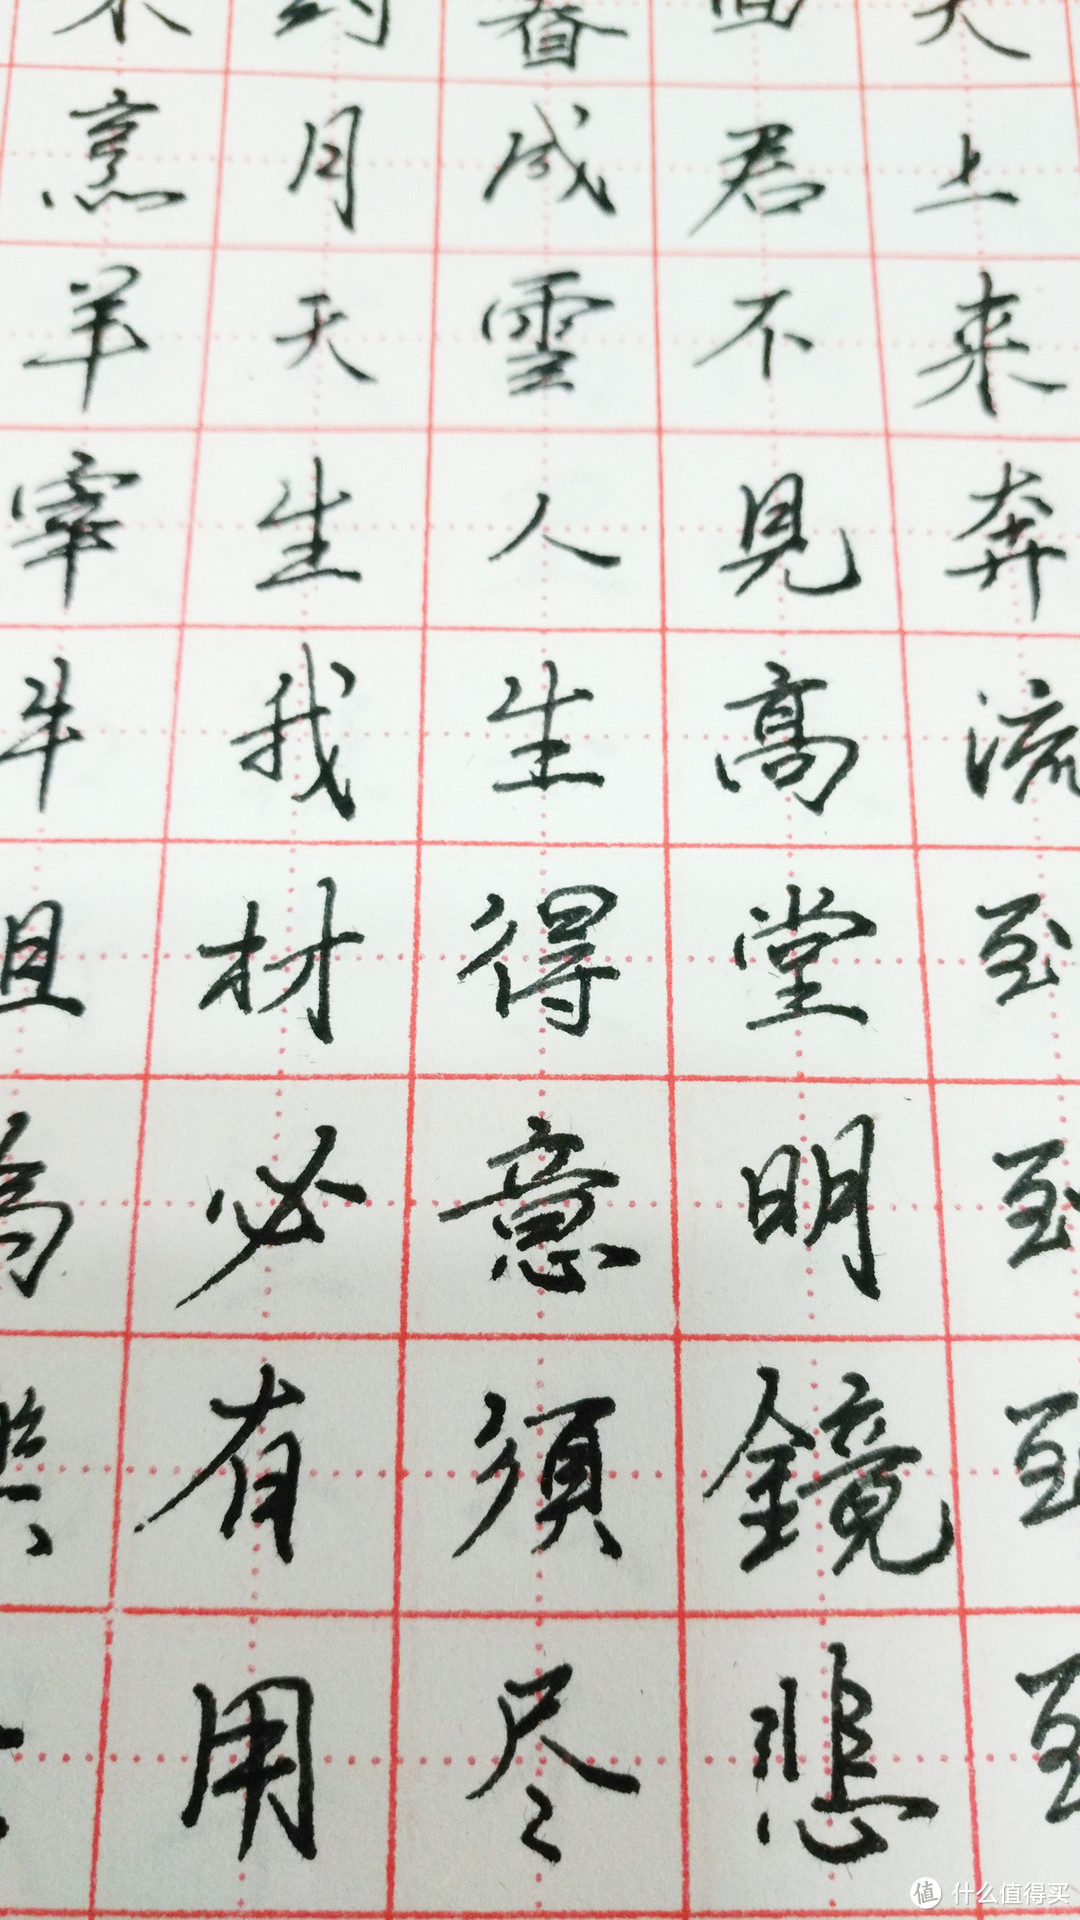 天上来奔流
回君不見高堂明鏡悲
成雪人生得意須尽
月天生我材必有用
烹羊宰牛且為
值 什么值得买